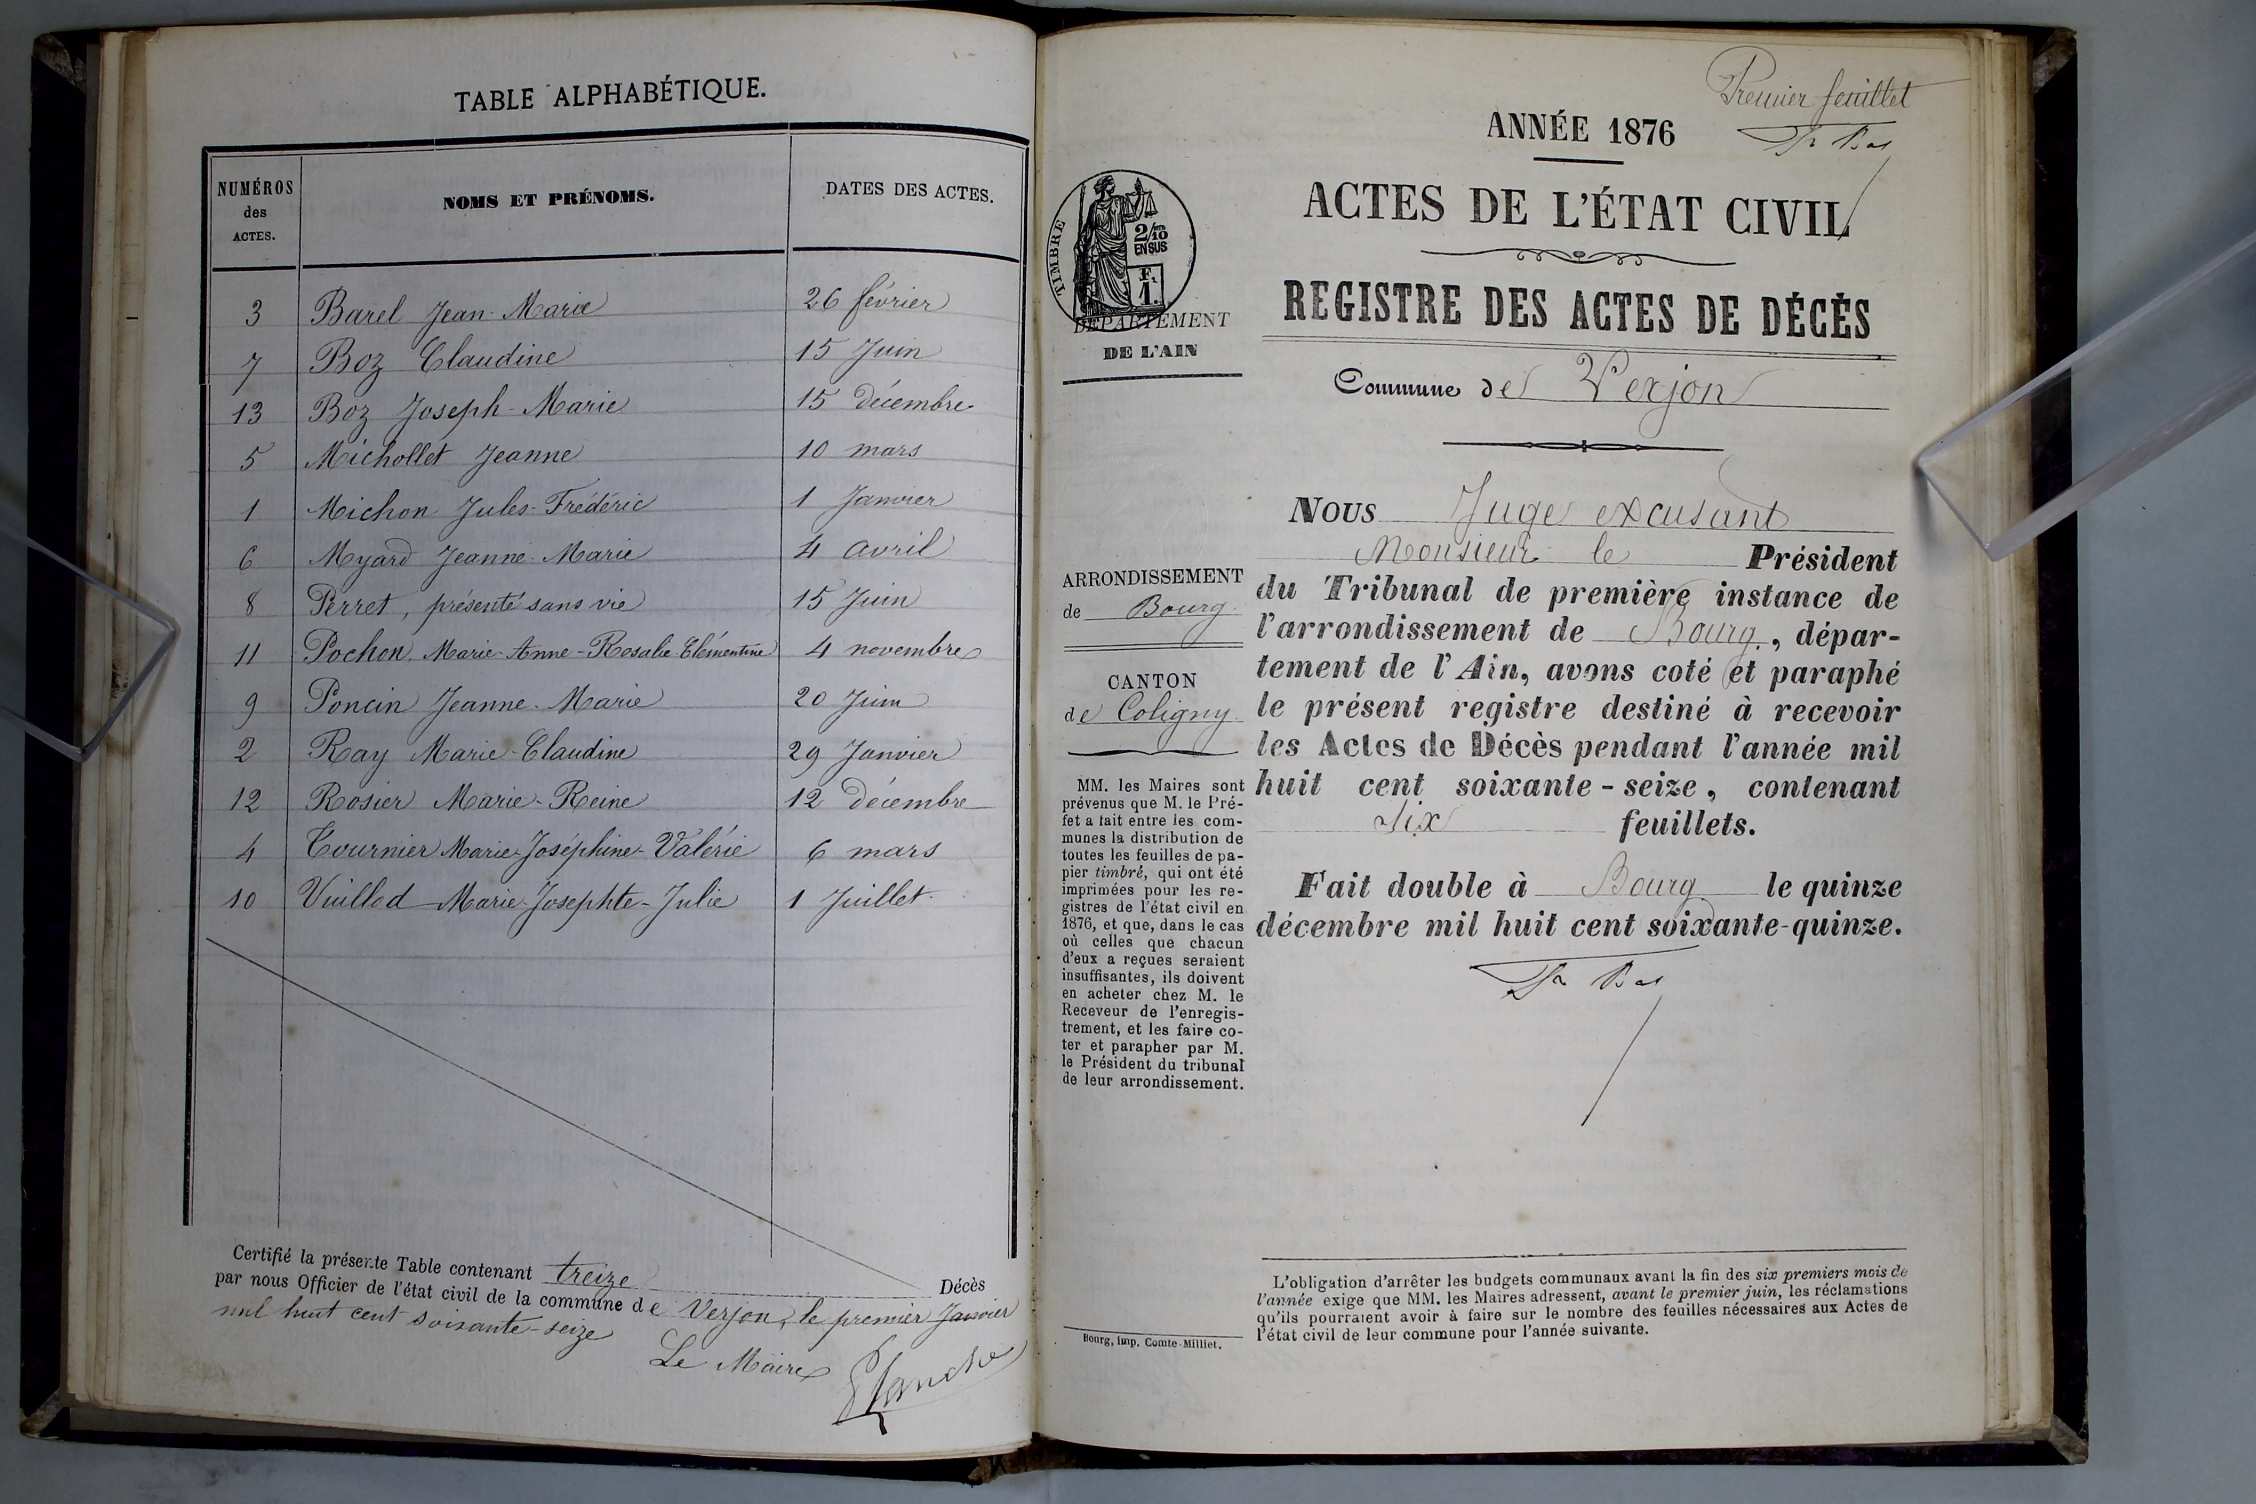 TABLE ALPHABÉTIQUE.
NUMÉROS des ACTES. NOMS ET PRÉNOMS. DATES DES ACTES.
3 Barel Jean-Marie 26 février
7 Boz Claudine 15 Juin
13 Boz Joseph-Marie 15 décembre
5 Michollet Jeanne 10 mars
1 Michon Jules-Frédéric 1 Janvier
6 Myard Jeanne-Marie 4 avril
8 Perret, présenté sans vie 15 Juin
11 Pochon Marie-Anne-Rosalie-Clémentine 4 novembre
9 Poncin Jeanne-Marie 20 Juin
2 Ray Marie-Claudine 29 Janvier
12 Rosier Marie-Reine 12 décembre
4 Tournier Marie-Joséphine-Valérie 6 mars
10 Vuillod Marie-Josephte-Julie 1 Juillet
Certifié la présente Table contenant treize Décès
par nous Officier de l'état civil de la commune de Verjon, le premier Janvier
mil huit cent soixante-seize
Le Maire
Premier feuillet
ANNÉE 1876
ACTES DE L'ÉTAT CIVIL
TIMBRE
2/10
EN SUS
F.
1.
REGISTRE DES ACTES DE DÉCÈS
DÉPARTEMENT
DE L'AIN
Commune de Verjon
ARRONDISSEMENT
de Bourg
CANTON
de Coligny
MM. les Maires sont
prévenus que M. le Pré-
fet a fait entre les com-
munes la distribution de
toutes les feuilles de pa-
pier timbré, qui ont été
imprimées pour les re-
gistres de l'état civil en
1876, et que, dans le cas
où celles que chacun
d'eux a reçues seraient
insuffisantes, ils doivent
en acheter chez M. le
Receveur de l'enregis-
trement, et les faire co-
ter et parapher par M.
le Président du tribunal
de leur arrondissement.
NOUS Juge excusant
Monsieur le Président
du Tribunal de première instance de
l'arrondissement de Bourg, dépar-
tement de l'Ain, avons coté et paraphé
le présent registre destiné à recevoir
les Actes de Décès pendant l'année mil
huit cent soixante-seize, contenant
Six feuillets.
Fait double à Bourg le quinze
décembre mil huit cent soixante-quinze.
L'obligation d'arrêter les budgets communaux avant la fin des six premiers mois de
l'année exige que MM. les Maires adressent, avant le premier juin, les réclamations
qu'ils pourraient avoir à faire sur le nombre des feuilles nécessaires aux Actes de
l'état civil de leur commune pour l'année suivante.
Bourg, imp. Comte-Milliet.